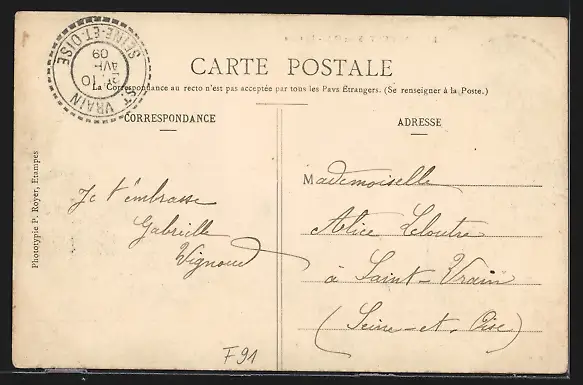 ST VRAIN
SEINE-ET-OISE
10
AVR
09
CARTE POSTALE
La Correspondance au recto n'est pas acceptée par tous les Pays Etrangers. (Se renseigner à la Poste.)
CORRESPONDANCE
Je t'embrasse
Gabrielle
Vignoud
ADRESSE
Mademoiselle
Alice Cloutre
à Saint-Vrain
(Seine-et-Oise)
Phototypie P. Royer, Etampes
F91